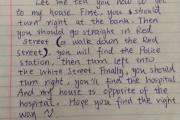 Let me tell you how to get
to my house. First, you should
turn right at the bank. Then
you should go straight in Red
Street (or walk down the Red
Street), you will find the Police
station, then turn left into
the White Street. Finally, you should
turn right, you'll find the hospital
And my house is opposite of the
hospital. Hope you find the right
way